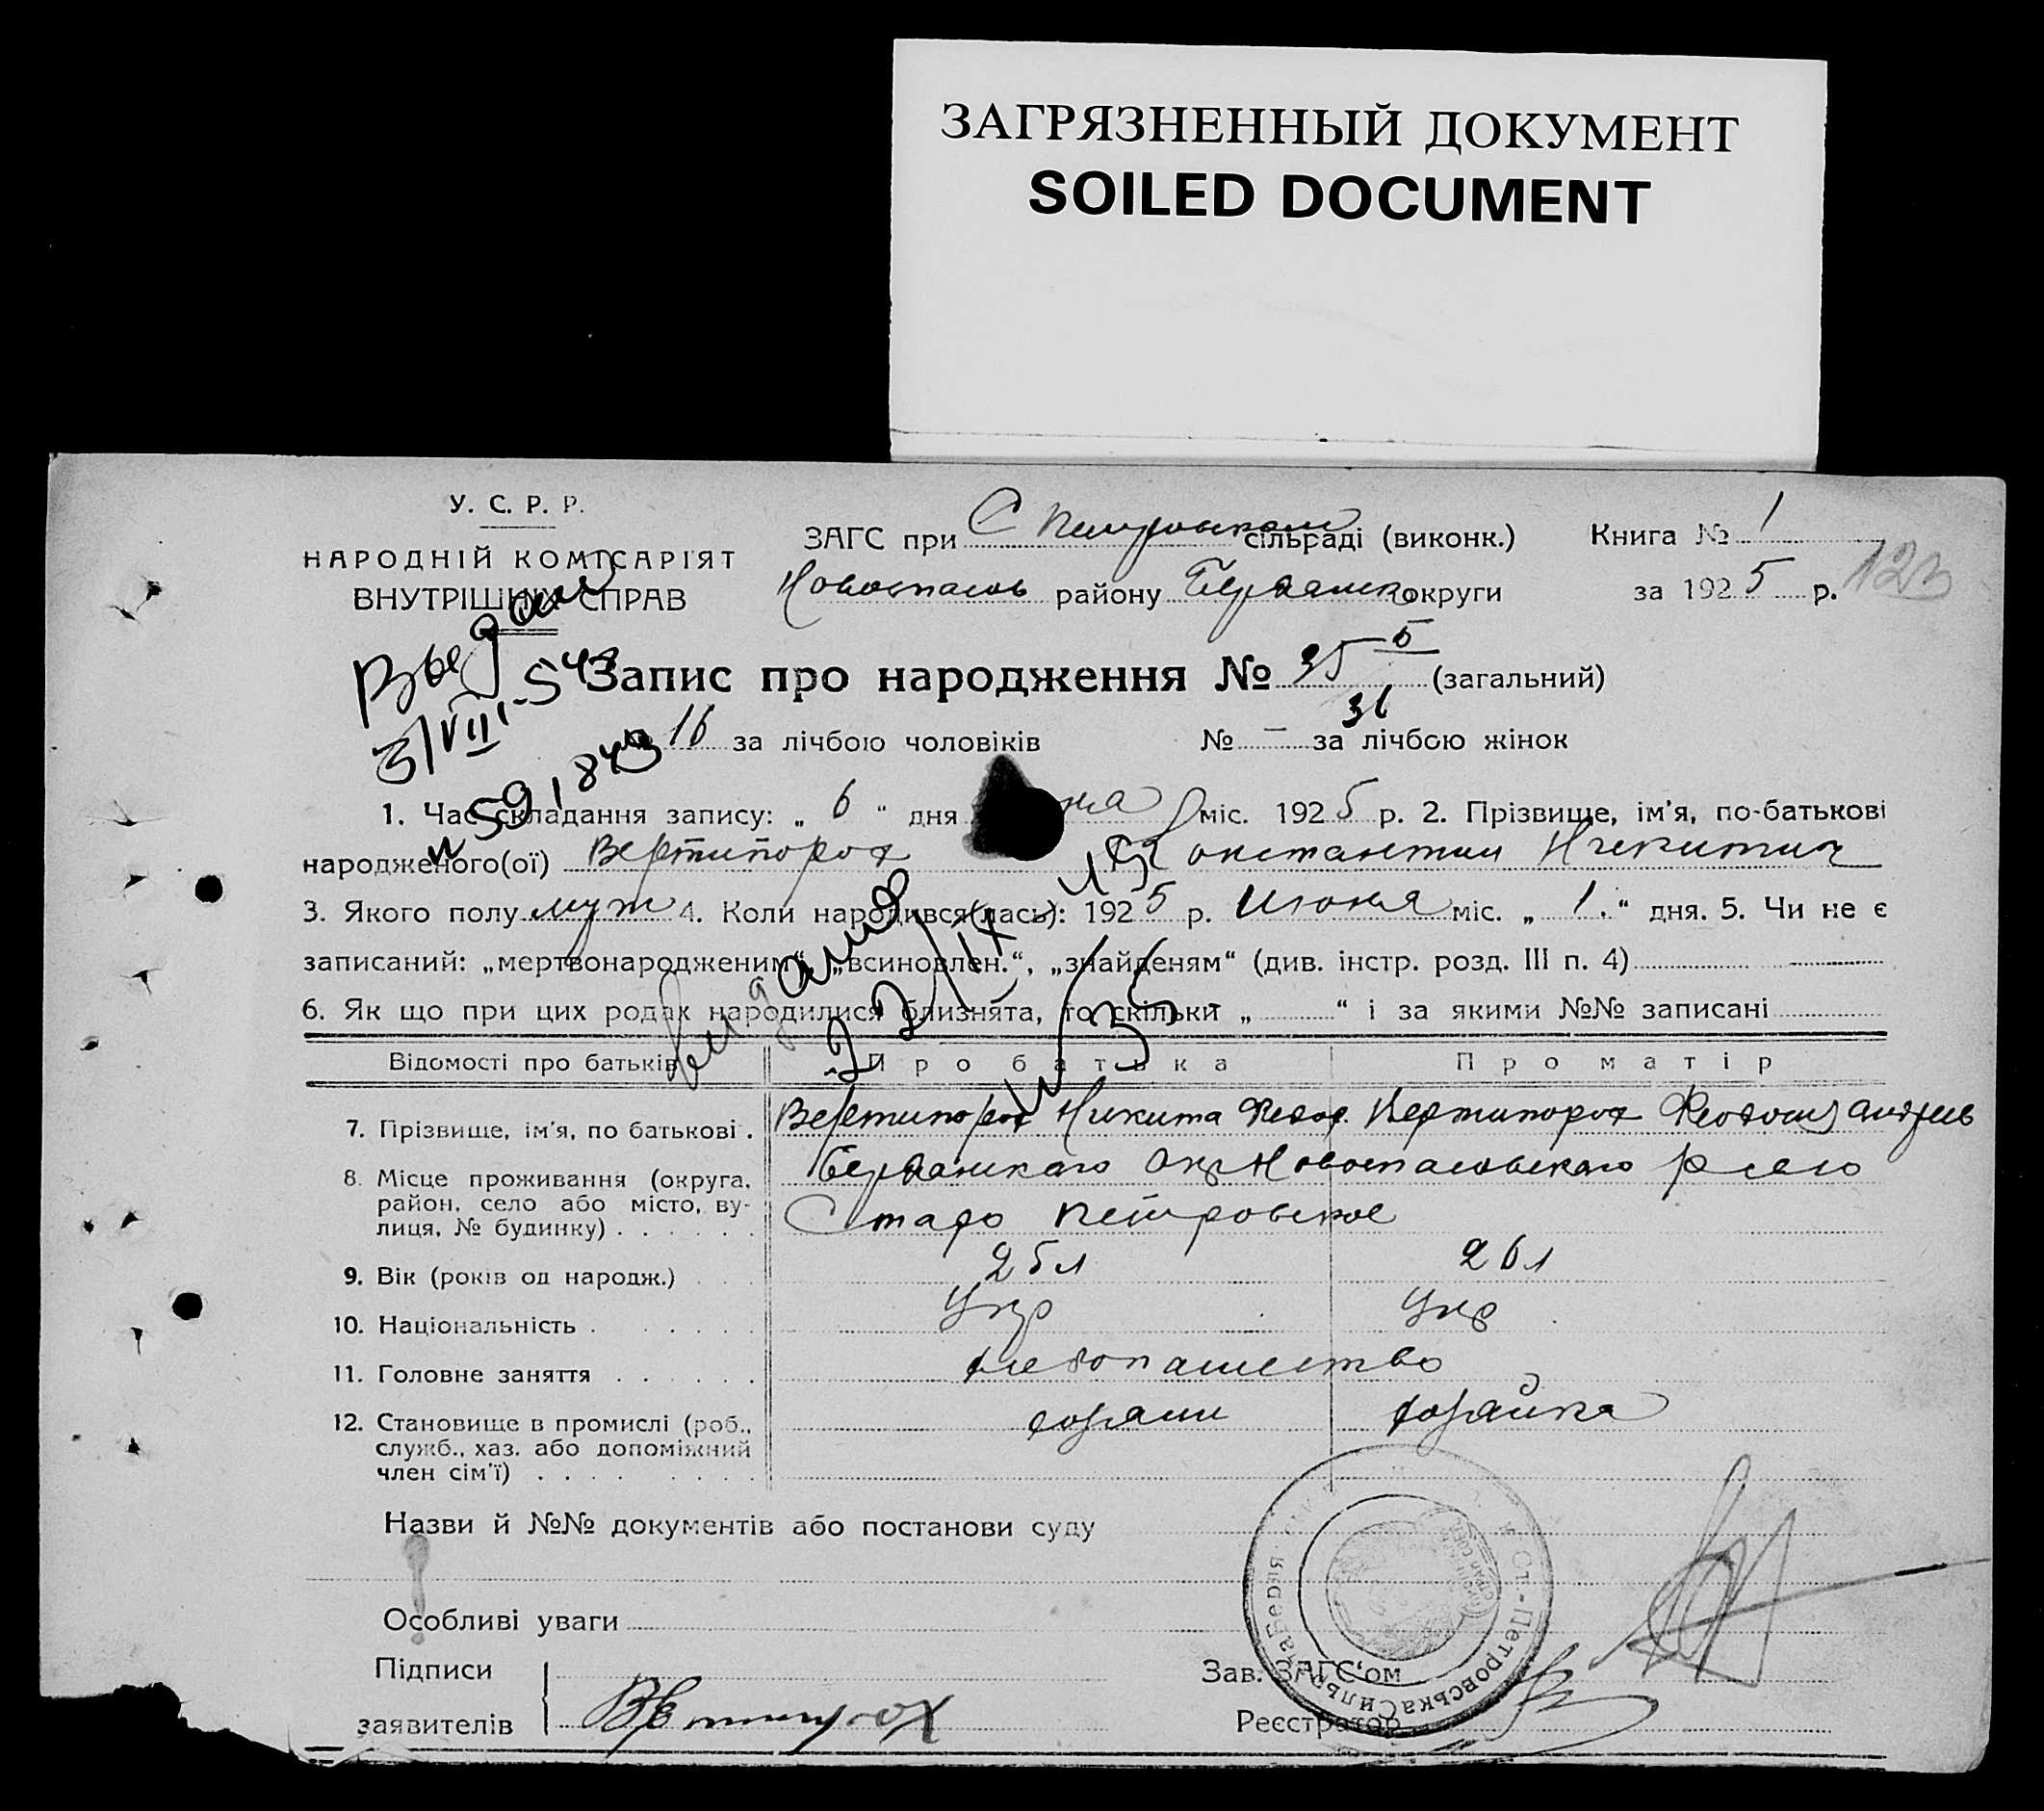 ЗАГРЯЗНЕННЫЙ ДОКУМЕНТ
SOILED DOCUMENT
У. С. Р. Р.
НАРОДНІЙ КОМІСАРІЯТ
ВНУТРІШНІХ СПРАВ
ЗАГС при С Петровском сільраді (виконк.)
Новоспасов району Бердянск округи
Книга № 1
за 1925 р. 123
Запис про народження № 35 5 (загальний)
31
16 за лічбою чоловіків № — за лічбою жінок
1. Час складання запису: „ 6 “ дня міс. 1925 р. 2. Прізвище, ім'я, по-батькові
народженого(ої) Вертипорох Константин Никитич
3. Якого полу муж 4. Коли народився(лась): 1925 р. Июня міс. „ 1. “ дня. 5. Чи не є
записаний: „мертвонародженим“, „всиновлен.“, „знайденям“ (див. інстр. розд. III п. 4)
6. Як що при цих родах народилися близнята, то скільки „ “ і за якими №№ записані
Відомості про батьків Про батька Про матір
7. Прізвище, ім'я, по батькові . Вертипорох Никита Федор. Вертипорох Феодосия Андреев
8. Місце проживання (округа, район, село або місто, вулиця, № будинку) Бердянскаго Окр Новоспасовскаго р село
Старо Петровское
9. Вік (років од народж.) 25 л 26 л
10. Національність Укр Укр
11. Головне заняття хлебопашество
12. Становище в промислі (роб., служб., хаз. або допоміжний член сім'ї) хозяин хозяйка
Назви й №№ документів або постанови суду
Особливі уваги
Підписи
заявителів Вертипорох
Зав. ЗАГС'ом
Реєстратор
Ст.-Петровська Сильрада
Выдано
3/VII-54
№ 591843
выдано
22/IX